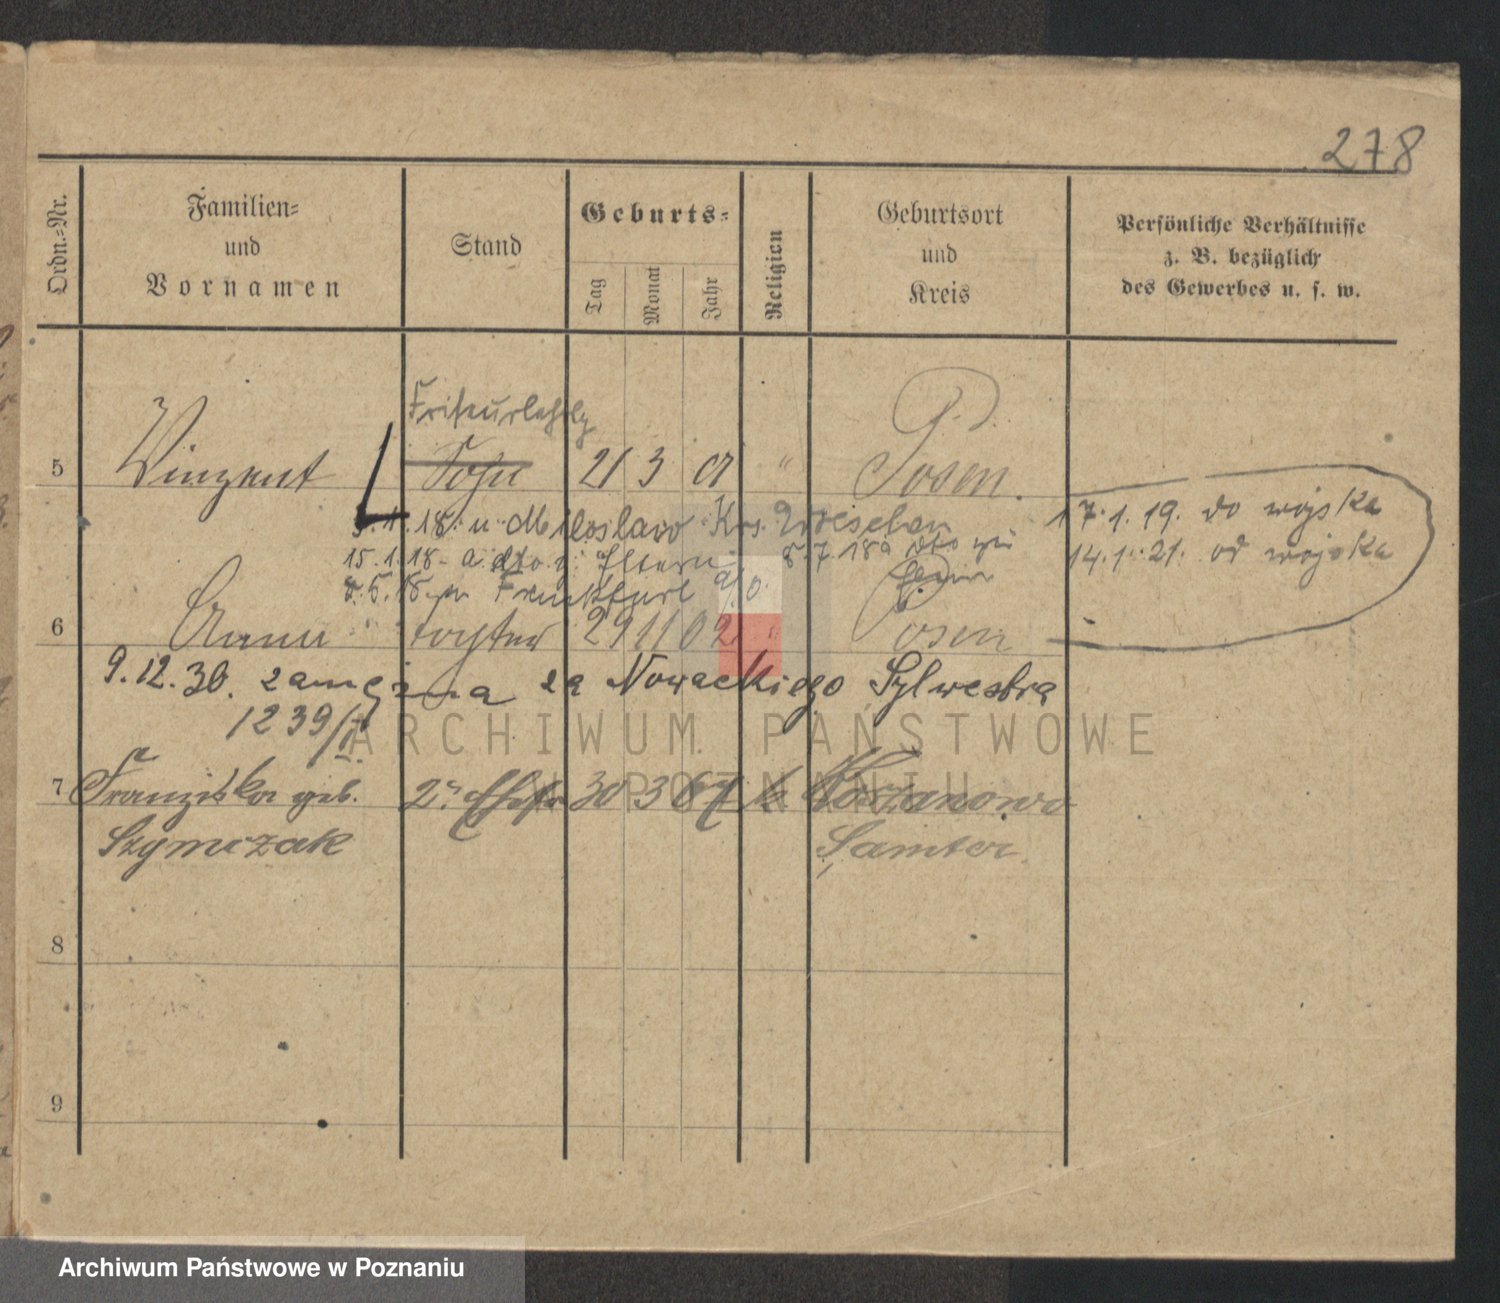 278
Ordn.-Nr.
Familien- und Vornamen
Stand
Geburts-
Tag Monat Jahr
Religion
Geburtsort und Kreis
Persönliche Verhältnisse z. B. bezüglich des Gewerbes u. s. w.
Friseurlehrlg
5 Vinzent Sohn 21 3 01 " Posen.
1.18. n Miloslaw Krs. Wreschen
17.1.19. do wojska
15.1.18. a dto. z. Eltern 8.7.18 a dto
14.1.21. od wojska
8.5.18. Frankfurt a/O.
6 Anna tochter 29 11 02 " Posen
9.12.30. zamężna za Nowackiego Sylwestra
1239/
7 Franziska geb. 2te Ehefr 30 3 67 k
Szymczak Samter.
8
9
ARCHIWUM PAŃSTWOWE
W POZNANIU
Archiwum Państwowe w Poznaniu